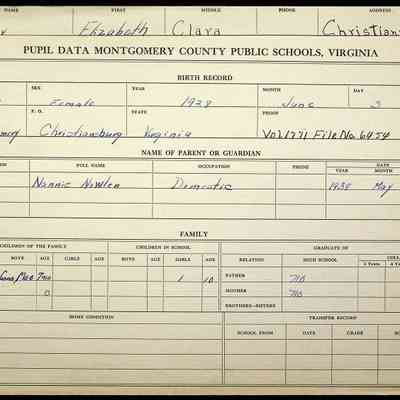 FIRST MIDDLE PHONE ADDRESS
Elizabeth Clara Christians
PUPIL DATA MONTGOMERY COUNTY PUBLIC SCHOOLS, VIRGINIA
BIRTH RECORD
SEX YEAR MONTH DAY
Female 1928 June 3
P. O. STATE
Christiansburg Virginia Vol 1771 File No. 6454
NAME OF PARENT OR GUARDIAN
FULL NAME OCCUPATION PHONE DATE
YEAR MONTH
Nannie Nowlen Domestic 1938 May
FAMILY
CHILDREN OF THE FAMILY CHILDREN IN SCHOOL GRADUATE OF
BOYS AGE GIRLS AGE BOYS AGE GIRLS AGE RELATION HIGH SCHOOL
2 Years 4 Yea
1 10 FATHER no
0 MOTHER no
BROTHERS—SISTERS
HOME CONDITION TRANSFER RECORD
SCHOOL FROM DATE GRADE